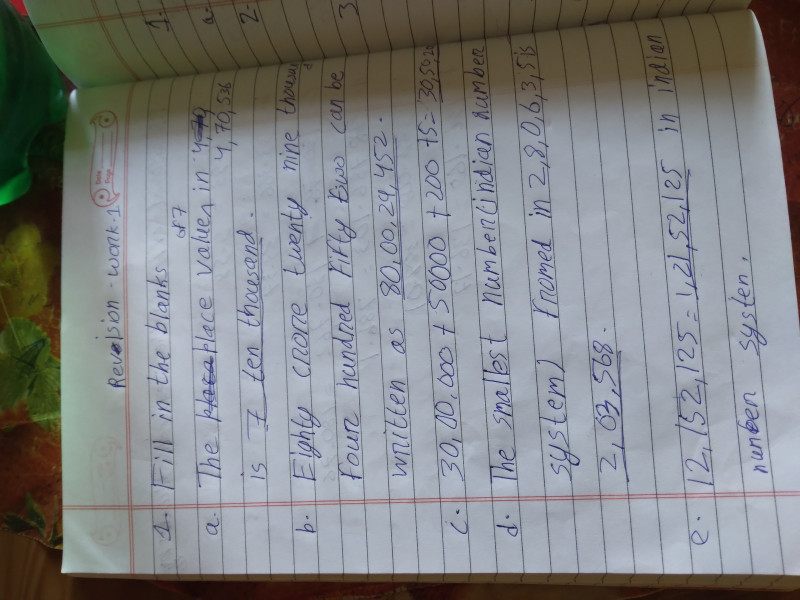 Revision-work-1
1. Fill in the blanks
a. The place value of 7 in 4,70,526
is 7 ten thousand.
b. Eighty crore twenty nine thousand
four hundred Fifty two can be
written as 80,00,29,452.
c. 30,00,000 + 50000 + 200 + 5 =
d. The smallest number (indian number
system) framed in 2,8,0,6,3,5 is
2,03,568.
e. 12,152,125 = 1,21,52,125 in indian
number system.
1.
a.
2.
3